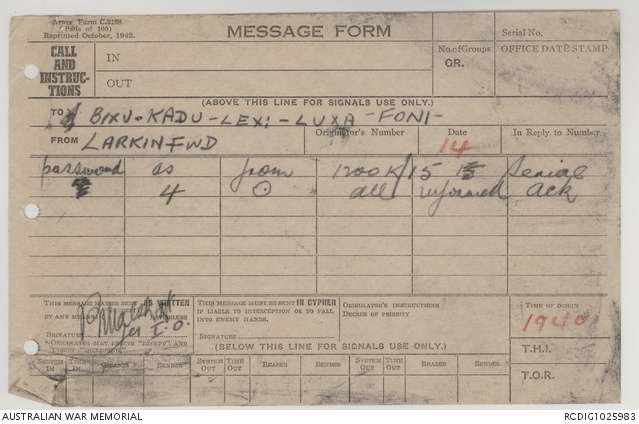 Army Form C.2128
(Pads of 100)
Reprinted October, 1942.
MESSAGE FORM
Serial No.
CALL AND INSTRUCTIONS
IN
OUT
No. of Groups
GR.
OFFICE DATE STAMP
(ABOVE THIS LINE FOR SIGNALS USE ONLY.)
TO BIXU - KADU - LEXI - LUXA - FONI -
FROM LARKIN FWD
Originator's Number
Date
14
In Reply to Number
password as from 1200K/15 15 Serial
4 all informed Ack
THIS MESSAGE MAY BE SENT AS WRITTEN
BY ANY MEANS
I.O.
SIGNATURE
THIS MESSAGE MUST BE SENT IN CYPHER
IF LIABLE TO INTERCEPTION OR TO FALL
INTO ENEMY HANDS.
SIGNATURE
ORIGINATOR'S INSTRUCTIONS
DEGREE OF PRIORITY
TIME OF ORIGIN
1940
T.H.I.
T.O.R.
(BELOW THIS LINE FOR SIGNALS USE ONLY.)
SYSTEM IN TIME IN READER SENDER SYSTEM OUT TIME OUT READER SENDER SYSTEM OUT TIME OUT READER SENDER
AUSTRALIAN WAR MEMORIAL
RCDIG1025983